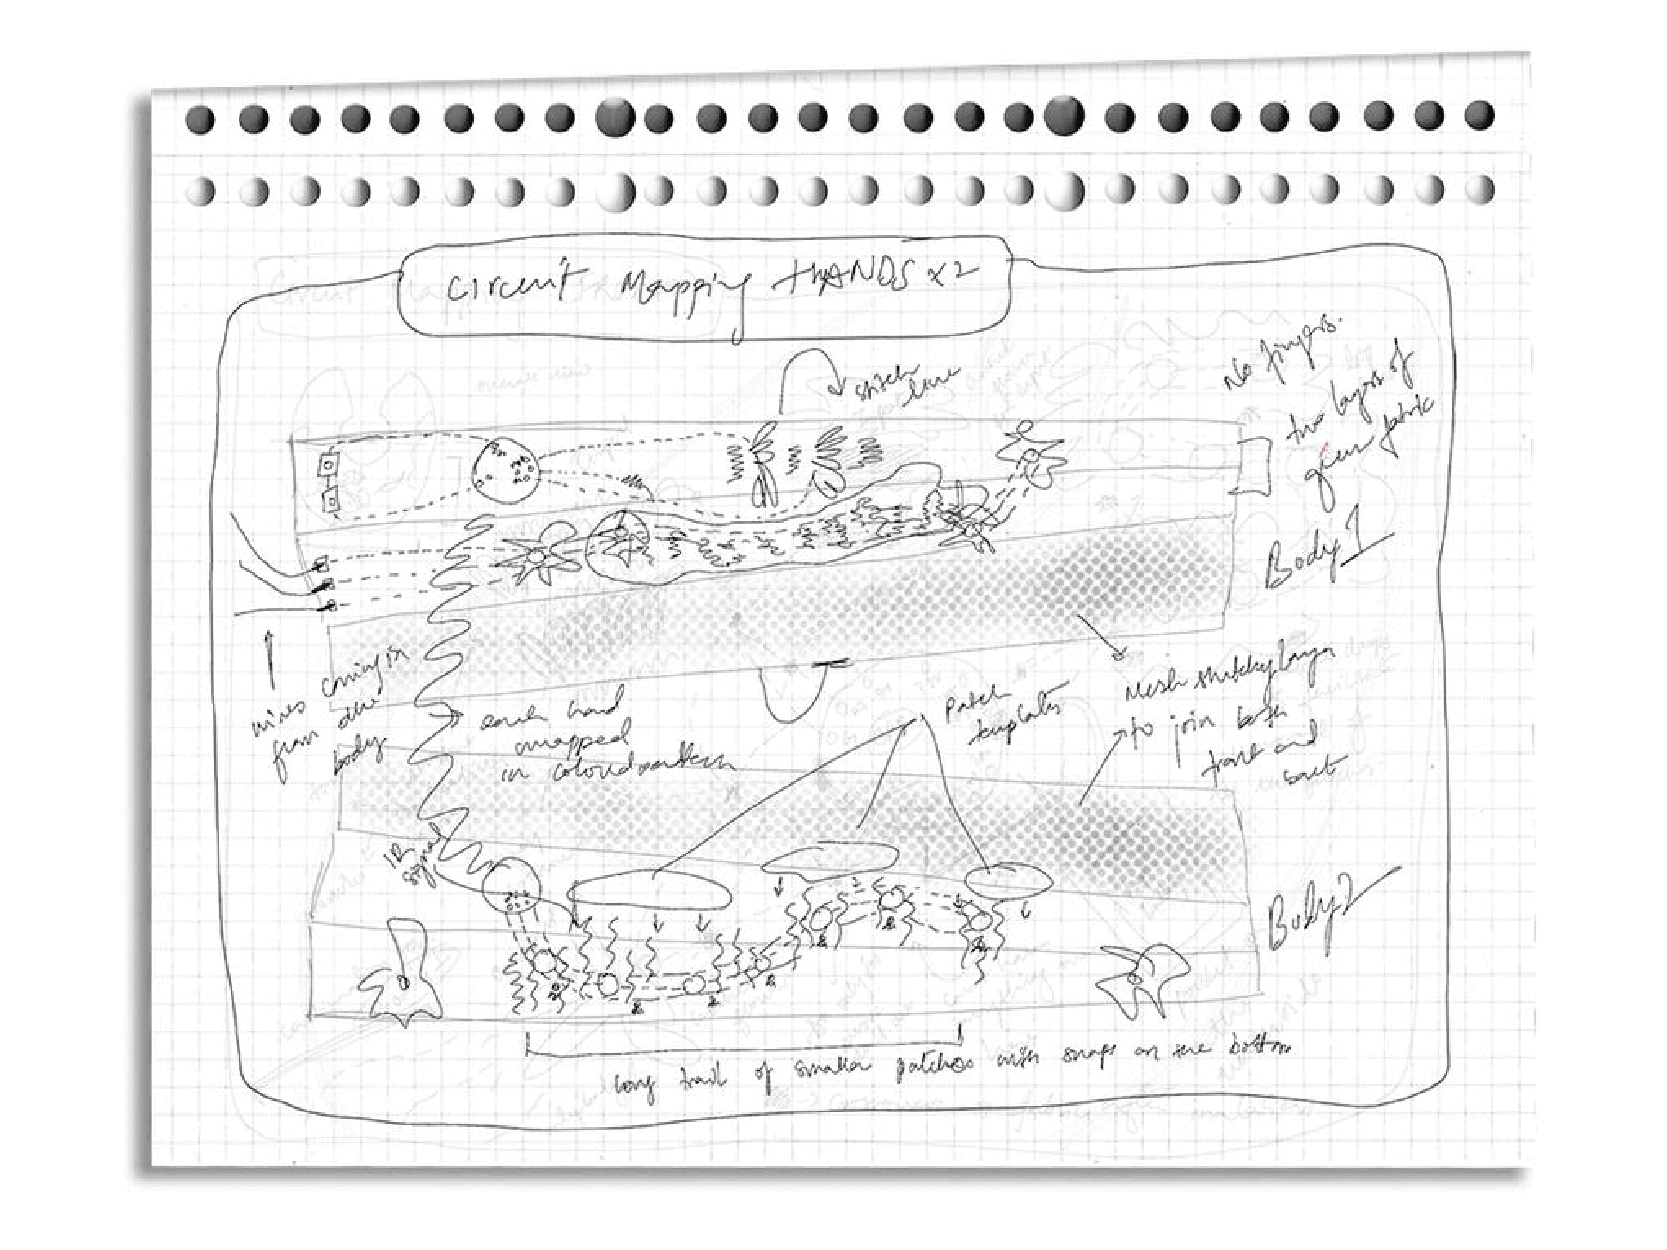 Circuit Mapping HANDS x2
stitch
line
No fingers.
two layers of
green fabric
Body 1
wires coming in
from the
body
each hand
wrapped
in
patch
templates
Mesh layer
to join both
front and
back
IR
signal
Body 2
long trail of smaller patches with snaps on the bottom